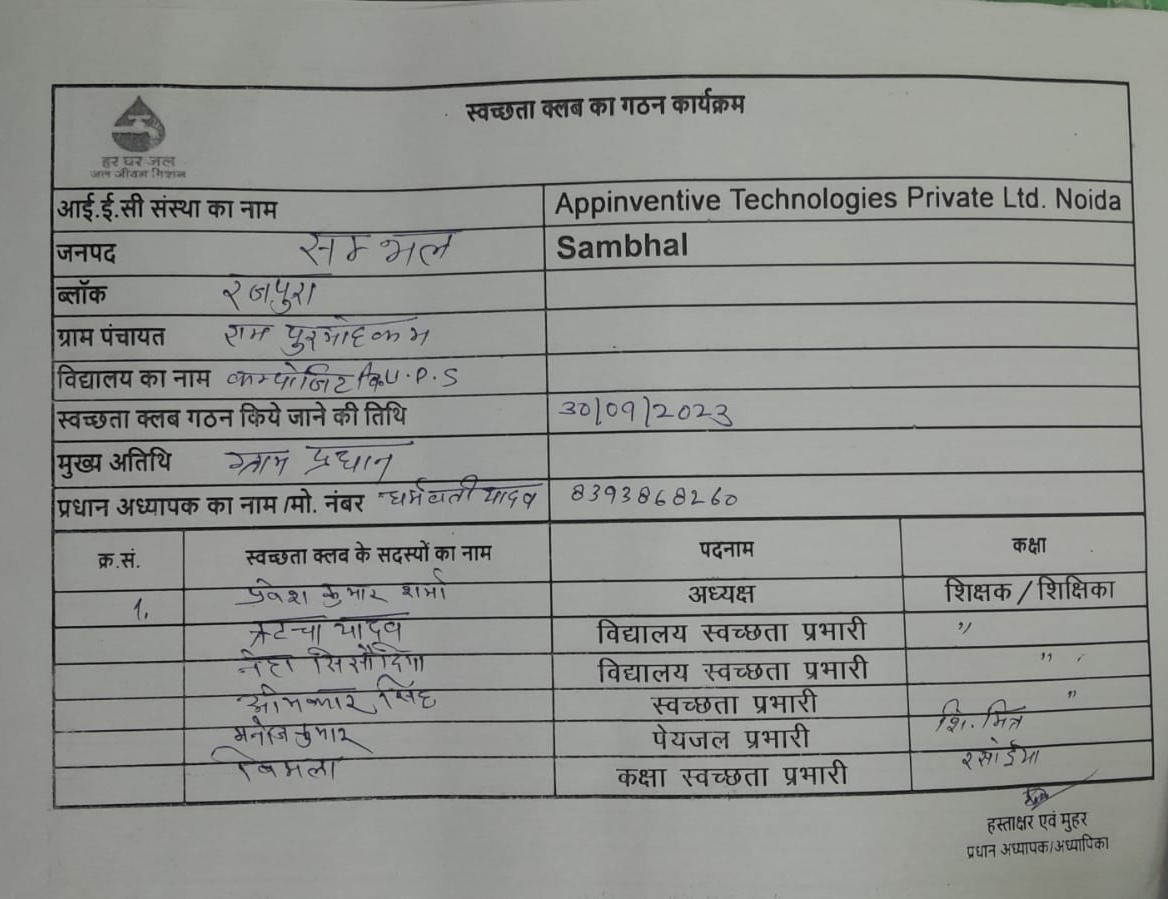 स्वच्छता क्लब का गठन कार्यक्रम
हर घर जल
जल जीवन मिशन
आई.ई.सी संस्था का नाम Appinventive Technologies Private Ltd. Noida
जनपद सम्भल Sambhal
ब्लॉक रजपुरा
ग्राम पंचायत राम पुर मोहकम
विद्यालय का नाम कम्पोजिट U.P.S
स्वच्छता क्लब गठन किये जाने की तिथि 30/09/2023
मुख्य अतिथि ग्राम प्रधान
प्रधान अध्यापक का नाम /मो. नंबर धर्मवती यादव 8393868260
क्र.सं. स्वच्छता क्लब के सदस्यों का नाम पदनाम कक्षा
1. प्रवेश कुमार शर्मा अध्यक्ष शिक्षक / शिक्षिका
यादव विद्यालय स्वच्छता प्रभारी "
नेहा सिसौदिया विद्यालय स्वच्छता प्रभारी "
ओमकार सिंह स्वच्छता प्रभारी "
मनोज कुमार पेयजल प्रभारी शि. मित्र
विमला कक्षा स्वच्छता प्रभारी रसोईया
हस्ताक्षर एवं मुहर
प्रधान अध्यापक/अध्यापिका